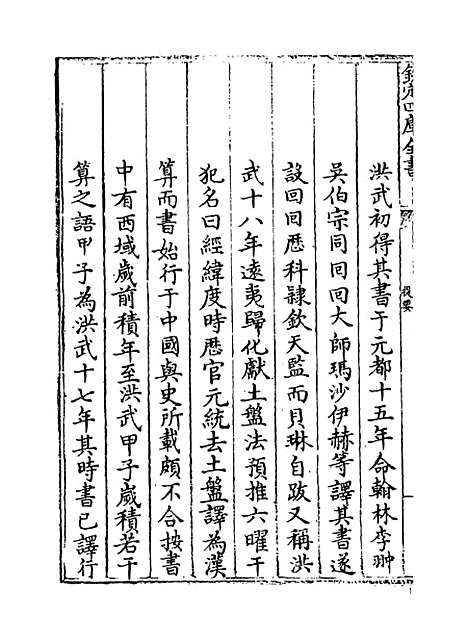 欽定四庫全書
提要
洪武初得其書于元都十五年命翰林李翀
吳伯宗同回回大師瑪沙伊赫等譯其書遂
設回回厯科隷欽天監而貝琳自跋又稱洪
武十八年遠夷歸化獻土盤法預推六曜干
犯名曰經緯度時厯官元統去土盤譯為漢
算而書始行于中國與史所載頗不合按書
中有西域歲前積年至洪武甲子歲積若干
算之語甲子為洪武十七年其時書已譯行